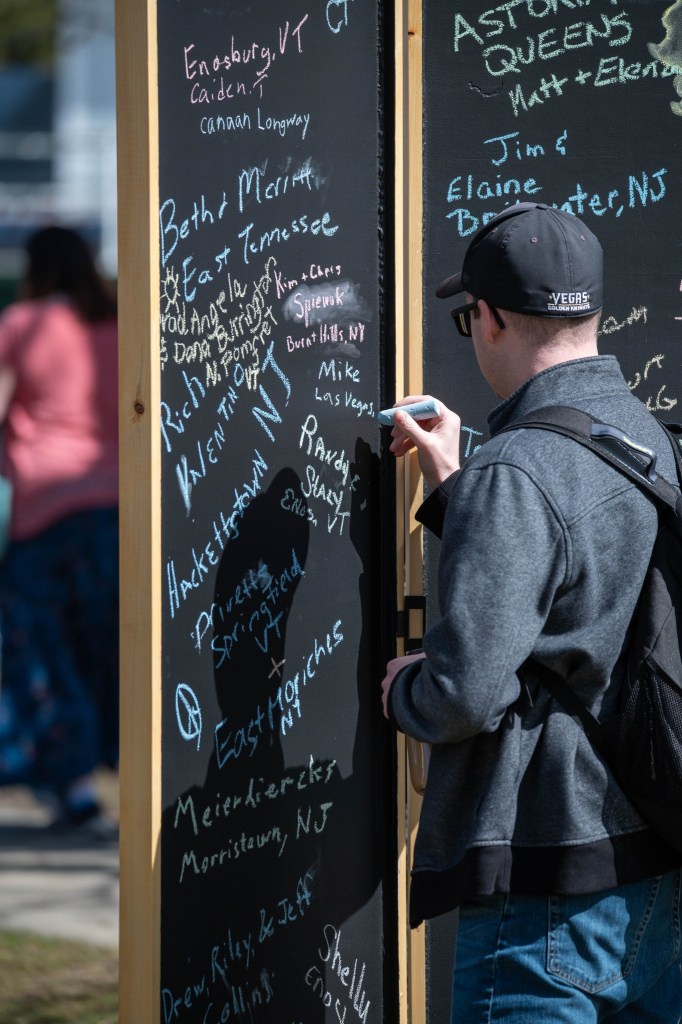 CT
Enosburg, VT
Caiden.T
Canaan Longway
Beth & Merritt
East Tennessee
Angela
& Dana Burrington
N. Pomfret
VT
Kim + Chris
Spiewok
Burnt Hills, NY
Mike
Las Vegas,
Rich
VALENTINO
NJ
HACKETTSTOWN
RANDY &
STACY
VT
Privetts
Springfield
VT
East Moriches
NY
Meierdiercks
Morristown, NJ
Drew, Riley, & Jeff
Collins.
Shelly
ASTORIA
QUEENS
Matt + Elena
Jim &
Elaine
NJ
VEGAS
GOLDEN KNIGHTS